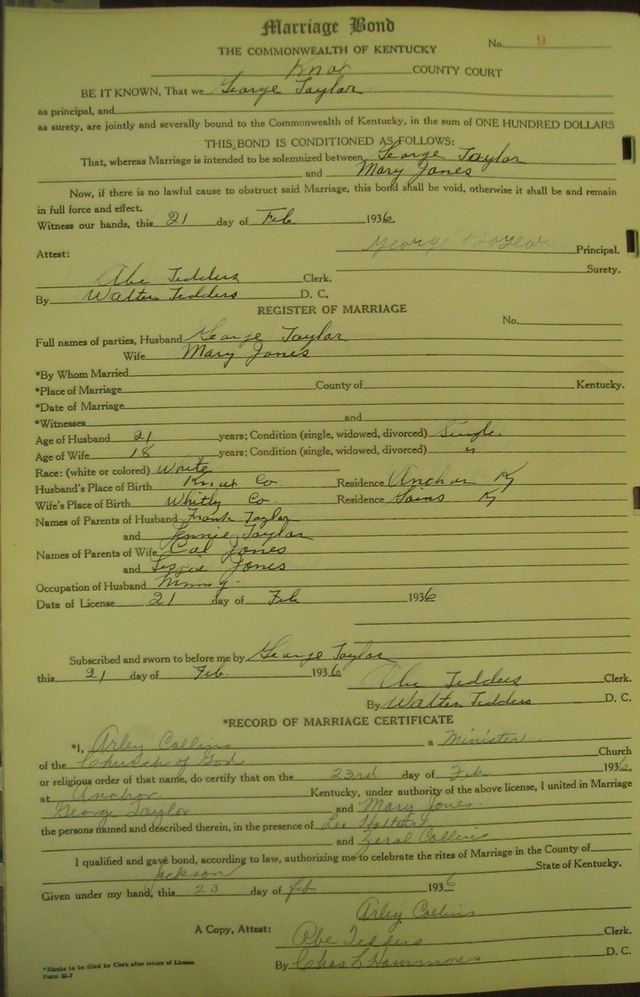 Marriage Bond
THE COMMONWEALTH OF KENTUCKY
No. 9
Knox COUNTY COURT
BE IT KNOWN, That we George Taylor
as principal, and
as surety, are jointly and severally bound to the Commonwealth of Kentucky, in the sum of ONE HUNDRED DOLLARS
THIS BOND IS CONDITIONED AS FOLLOWS:
That, whereas Marriage is intended to be solemnized between George Taylor
and Mary Jones
Now, if there is no lawful cause to obstruct said Marriage, this bond shall be void, otherwise it shall be and remain
in full force and effect.
Witness our hands, this 21 day of Feb 1936.
George Principal.
Attest:
Surety.
Abe Tedders Clerk.
By Walter Tedders D. C.
REGISTER OF MARRIAGE
No.
Full names of parties, Husband George Taylor
Wife Mary Jones
*By Whom Married
*Place of Marriage County of Kentucky.
*Date of Marriage
*Witnesses and
Age of Husband 21 years; Condition (single, widowed, divorced) Single
Age of Wife 18 years; Condition (single, widowed, divorced) "
Race: (white or colored) White
Husband's Place of Birth Knox Co. Residence Anchor Ky
Wife's Place of Birth Whitly Co. Residence Ky
Names of Parents of Husband Frank Taylor
and Jennie Taylor
Names of Parents of Wife Cal Jones
and Jones
Occupation of Husband
Date of License 21 day of Feb 1936
Subscribed and sworn to before me by George Taylor
this 21 day of Feb. 1936
Abe Tedders Clerk.
By Walter Tedders D. C.
*RECORD OF MARRIAGE CERTIFICATE
*I, Arley Collins a Minister
of the Church of God Church
or religious order of that name, do certify that on the 23rd day of Feb 1936,
at Anchor Kentucky, under authority of the above license, I united in Marriage
George Taylor and Mary Jones.
the persons named and described therein, in the presence of Lee
and Collins
I qualified and gave bond, according to law, authorizing me to celebrate the rites of Marriage in the County of
Jackson State of Kentucky.
Given under my hand, this 23 day of feb 1936
Arley Collins
A Copy, Attest: Abe Tedders Clerk.
By Chas L Hammons D. C.
*Blanks to be filed by Clerk after return of License
Form M-7